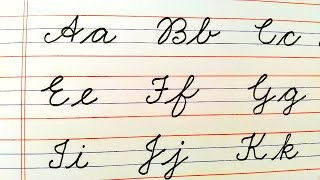 Aa Bb Cc
Ee Ff Gg
Ii Jj Kk